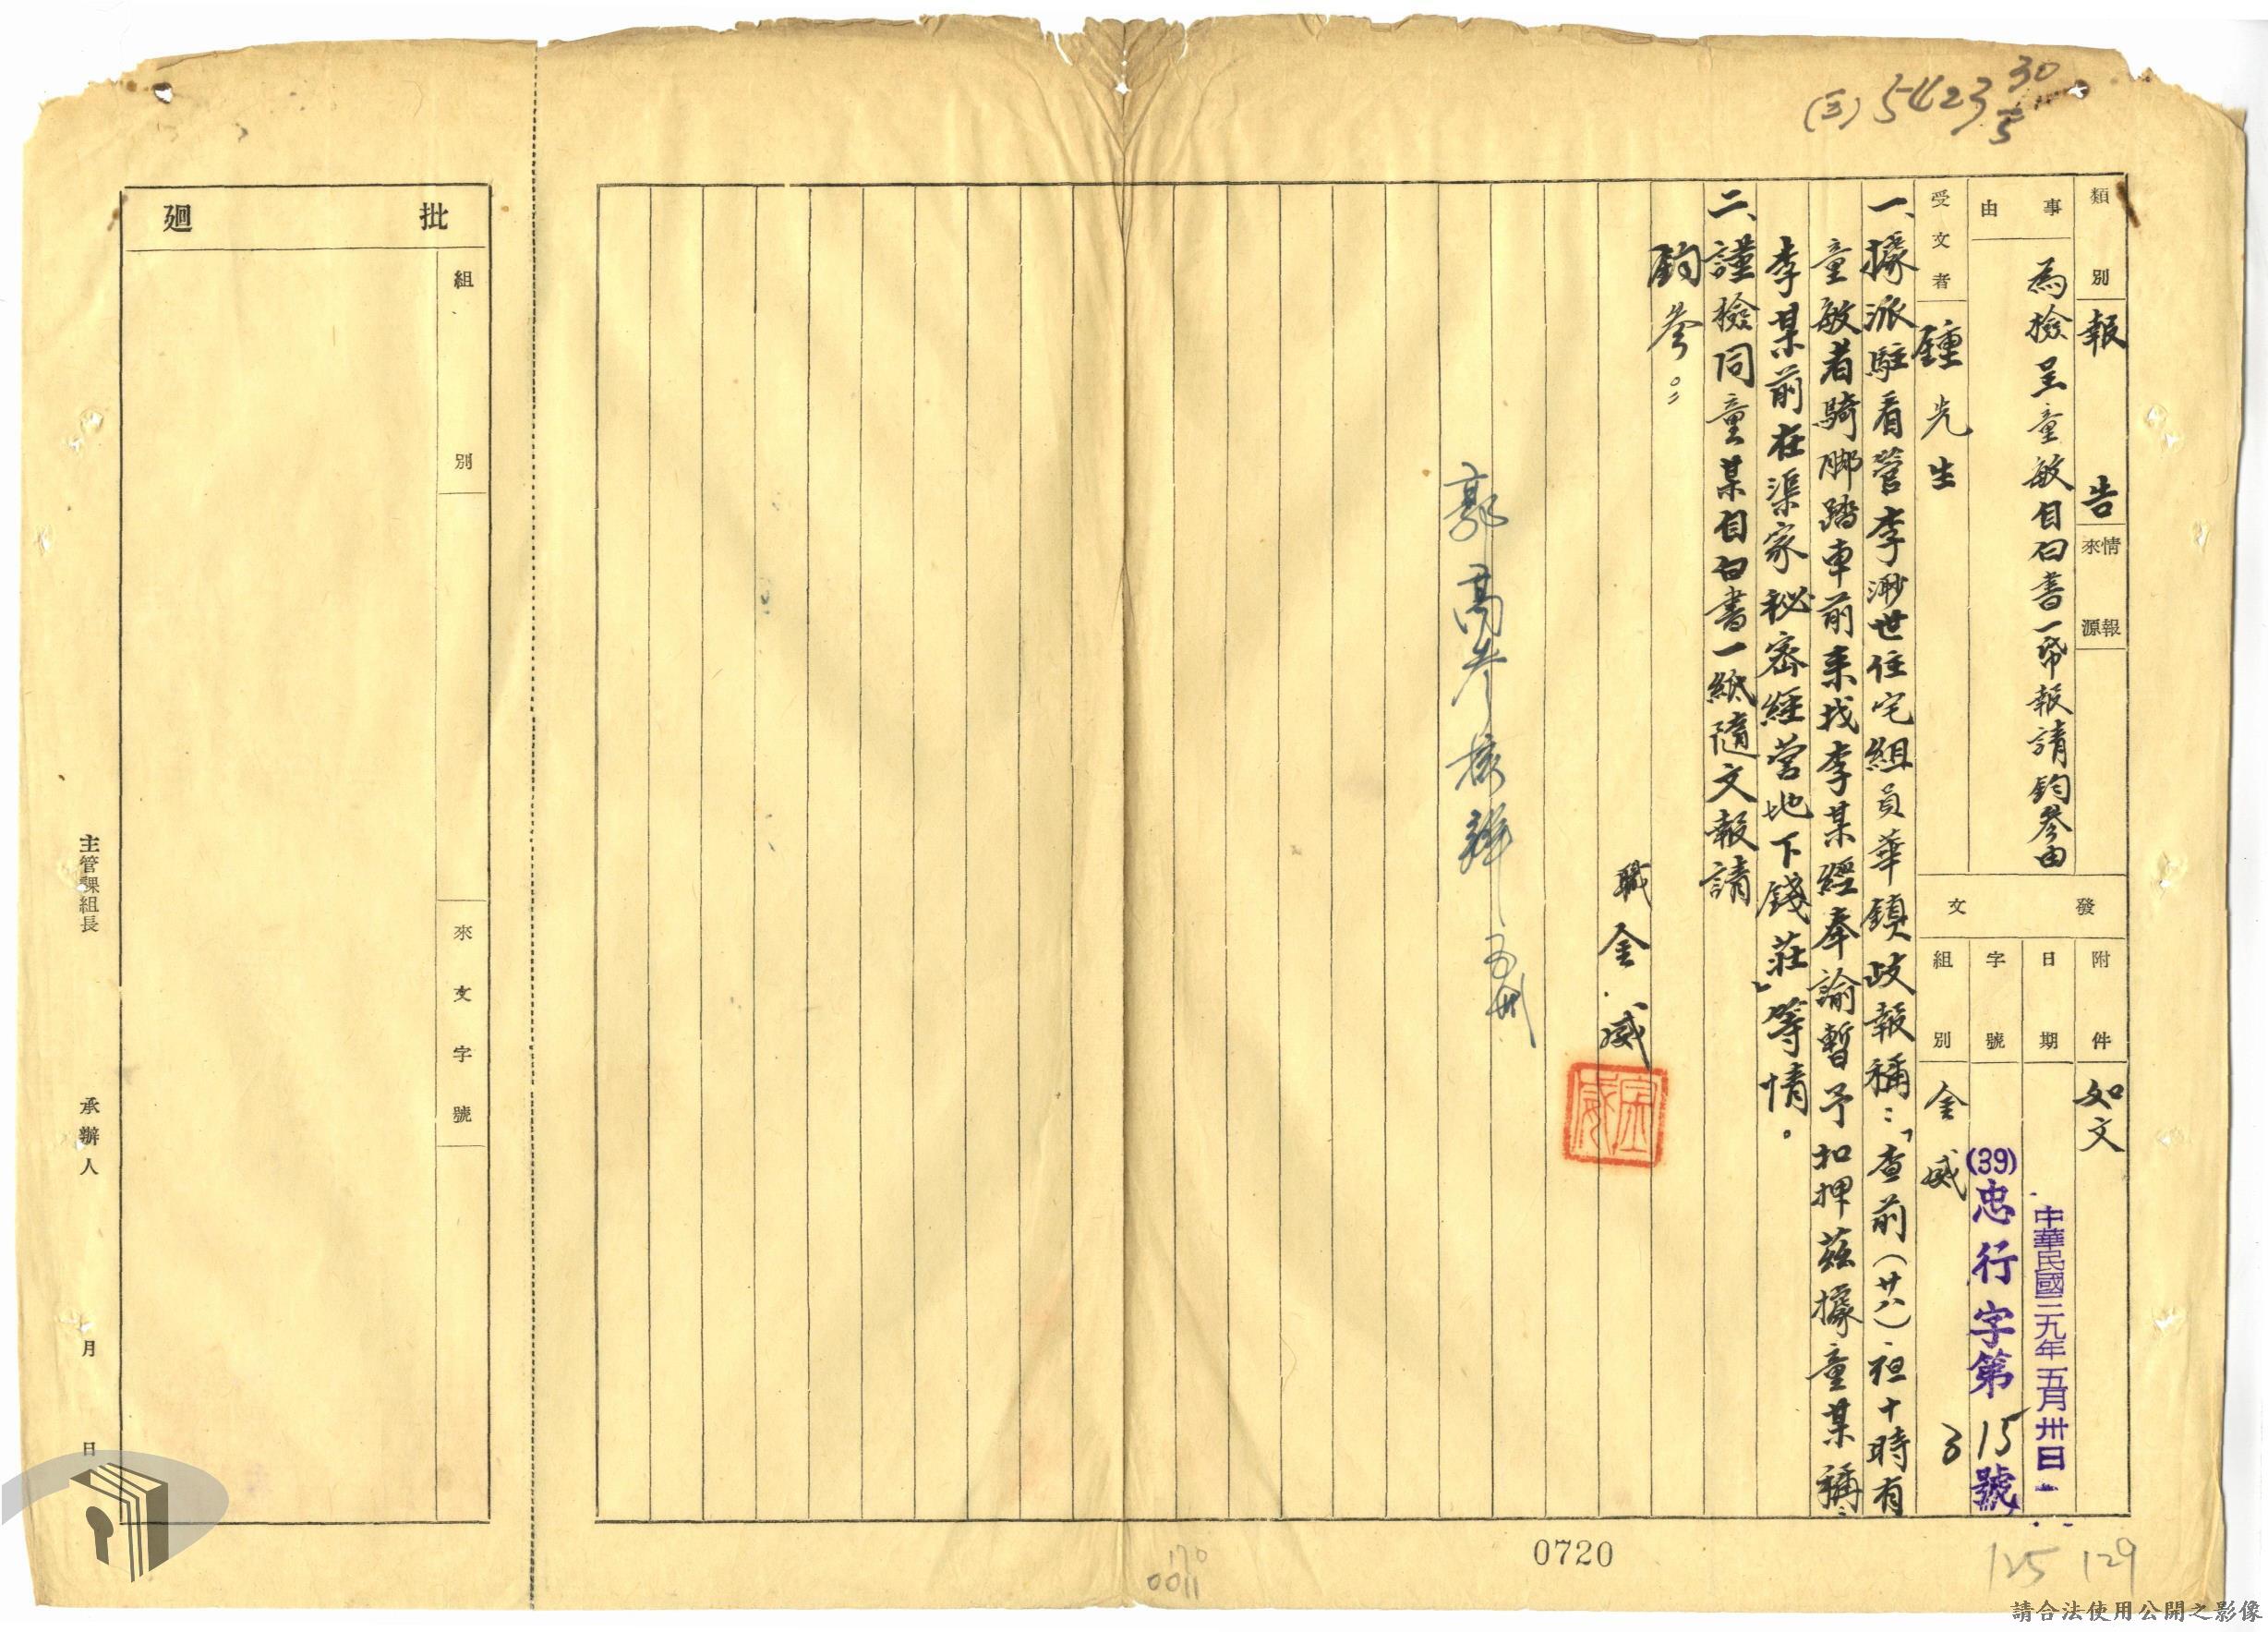 (三) 5423 30/5
類別 報告
情報來源
事由 為檢呈童敏自白書一帋報請鈞參由
受文者 鍾先生
發文
附件 如文
日期 中華民國三九年五月卅日
字號 (39)忠行字第315號
組別 金威
一、據派駐看管李渺世住宅組員華鎮歧報稱：「查前(廿八)夜十時有
童敏者騎脚踏車前來找李某經奉諭暫予扣押茲據童某稱：
李某前在渠家秘密經營地下錢莊」等情。
二、謹檢同童某自白書一紙隨文報請
鈞參。
職 金威
郭高參核辦 五卅
批廻
組別
來文字號
主管課組長
承辦人
月 日
0720
170
0011
125 129
請合法使用公開之影像